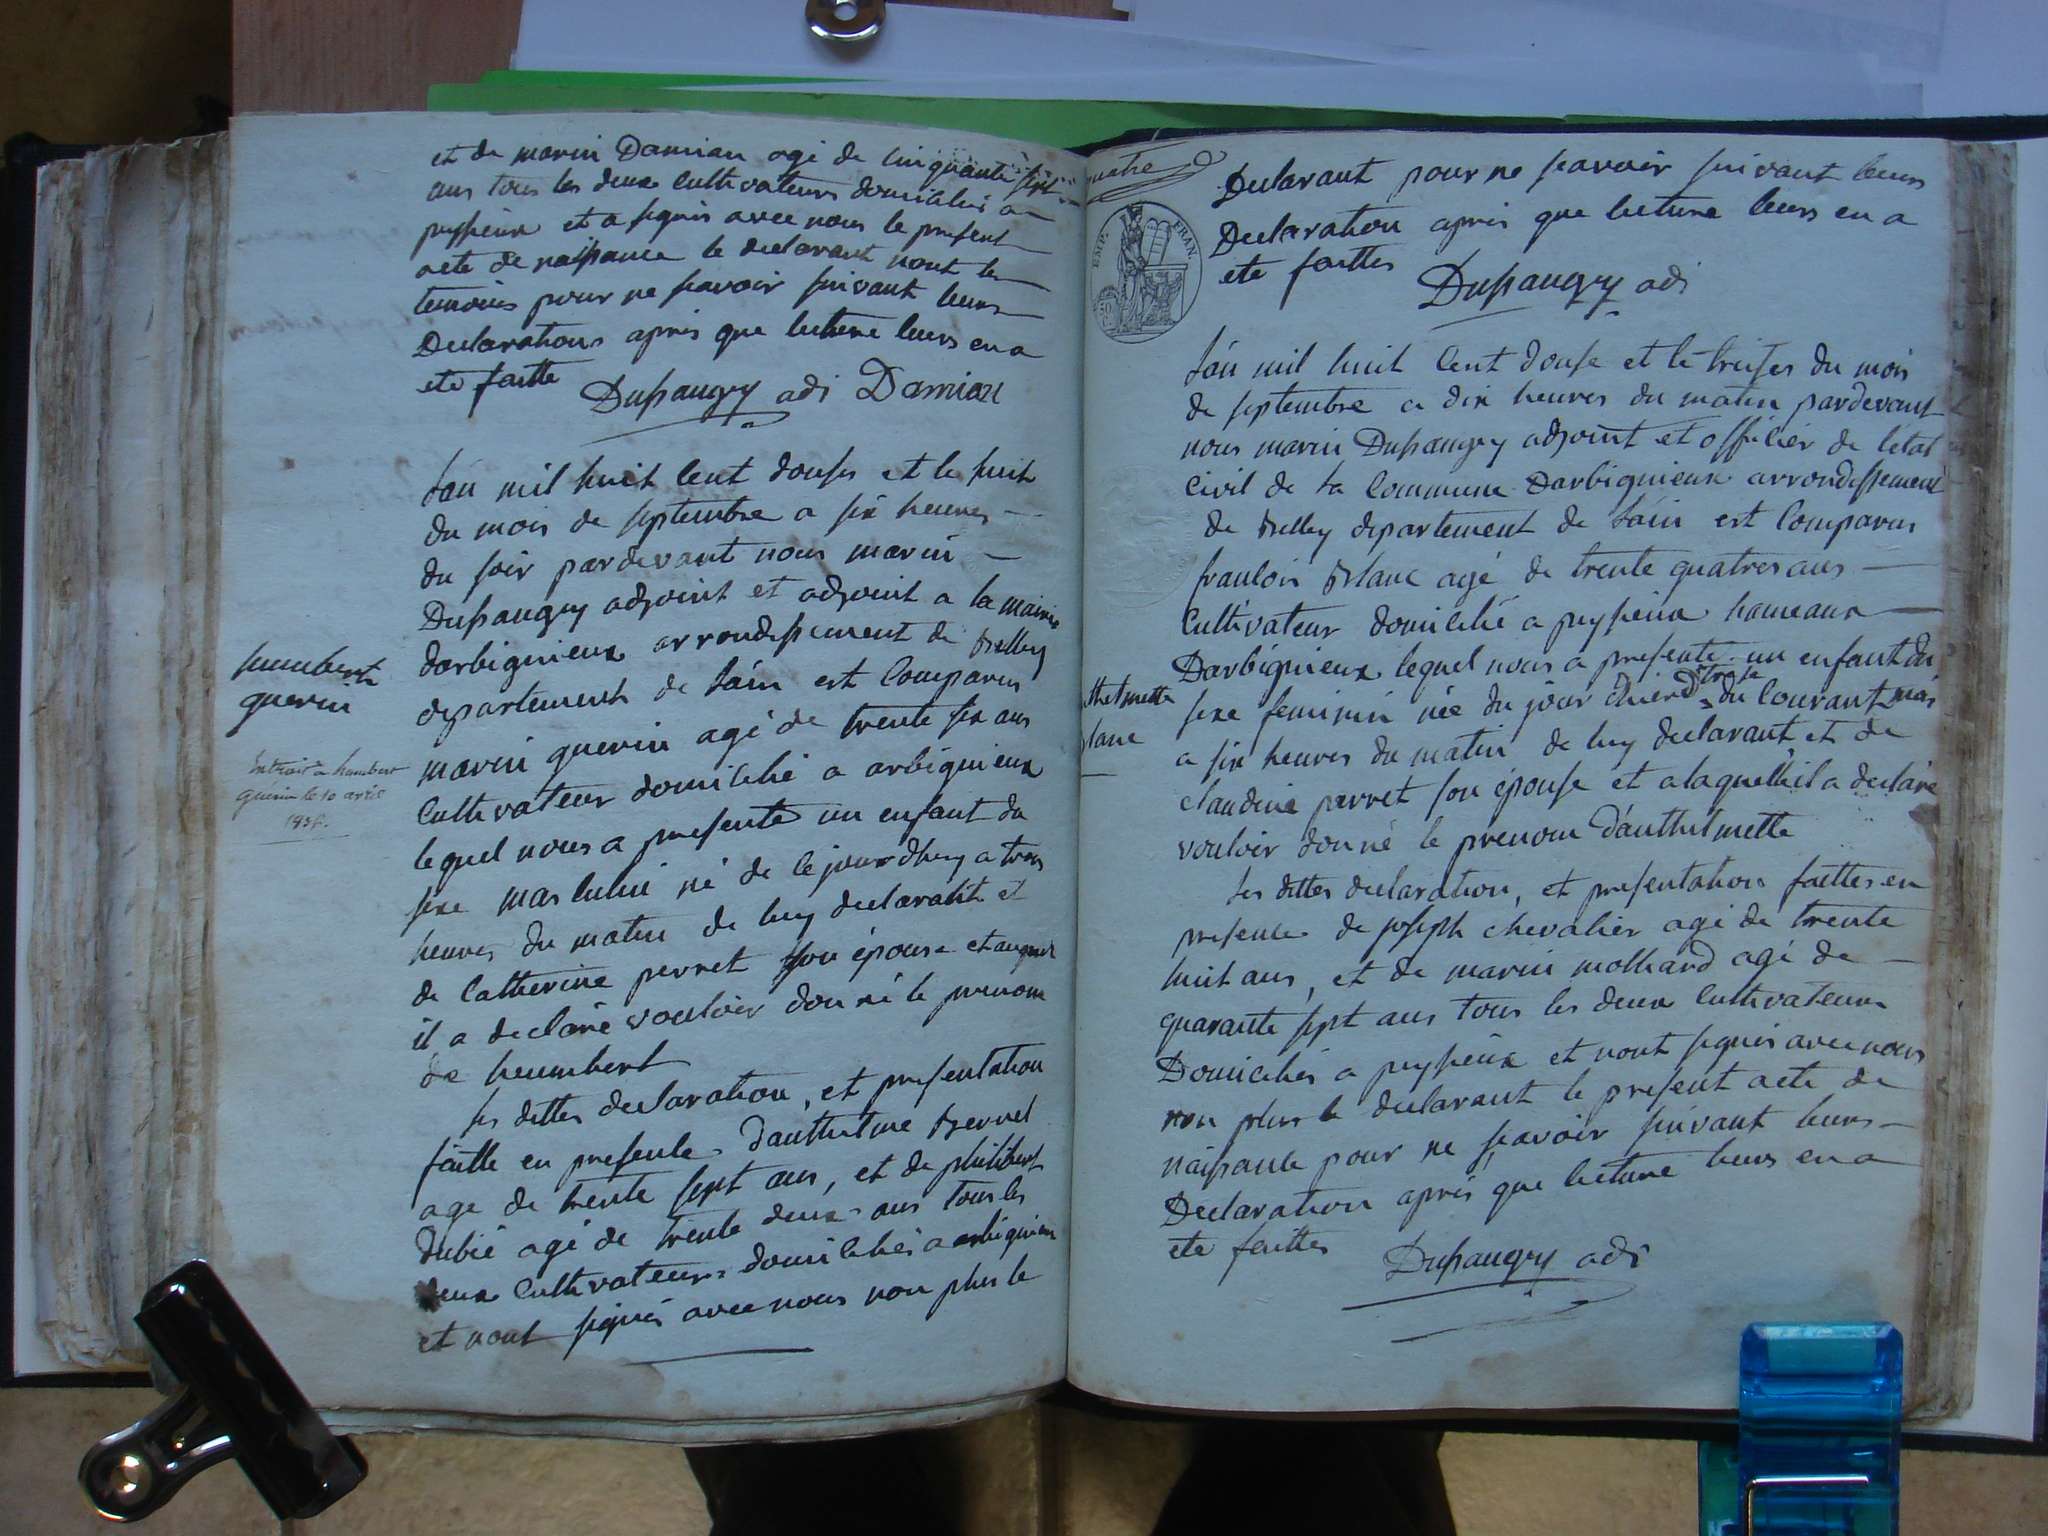 et de marin Damian agé de cinquante sept
ans tous les deux cultivateurs domiciliés a
peyzieux et a signés avec nous le present
acte de naissance le declarant nont les
temoins pour ne scavoir suivant leurs
Declarations après que lecture leurs en a
ete faitte
Dupaugey adj Damian
Lán mil huit cent douses et le huit
du mois de septembre a six heures
du soir pardevant nous marin
Dupaugey adjoint et adjoint a la mairie
darbignieux arrondissement de Belley
departement de Láin est comparus
marin guerin agé de trente six ans
cultivateur domicilié a arbignieux
lequel nous a presenté un enfant du
sexe masculin né de ce jourdhuy a trois
heures du matin de luy declarant et
de Catherine perret son épouse et auquel
il a declaré vouloir donné le prenom
de heumbert
les dittes declaration, et presentation
faitte en presence dánthelme Bervel
age de trente sept ans, et de philibert
dubié agé de trente deux ans tous les
deux cultivateurs domiciliés a arbignieux
et nont signés avec nous non plus le
humbert
guerin
Extrait a humbert
guerin le 10 avril
quatre
EMP. FRAN.
Declarant pour ne scavoir suivant leurs
Declaration après que lecture leurs en a
ete faittes
Dupaugey adj
Lán mil huit cent douse et le treises du mois
de septembre a dix heures du matin pardevant
nous marin Dupaugey adjoint et officier de létat
civil de la Commune Darbignieux arrondissement
de Belley departement de Láin est comparus
francois Blanc agé de trente quatres ans
Cultivateur domicilié a peyzieux hameaux
Darbignieux lequel nous a presenté un enfant du
sexe feminin née du jour dhier douse du courant mois
a six heures du matin de luy declarant et de
claudine perret son épouse et a laquelle il a declaré
vouloir donné le prenom dánthelmette
les dittes declaration, et presentation faittes en
presence de joseph chevalier agé de trente
huit ans, et de marin molliard agé de
quarante sept ans tous les deux cultivateurs
Domiciliés a peyzieux et nont signés avec nous
non plus le declarant le present acte de
naissance pour ne scavoir suivant leurs
Declaration après que lecture leurs en a
ete faittes
Dupaugey adj
thelmette
lanc